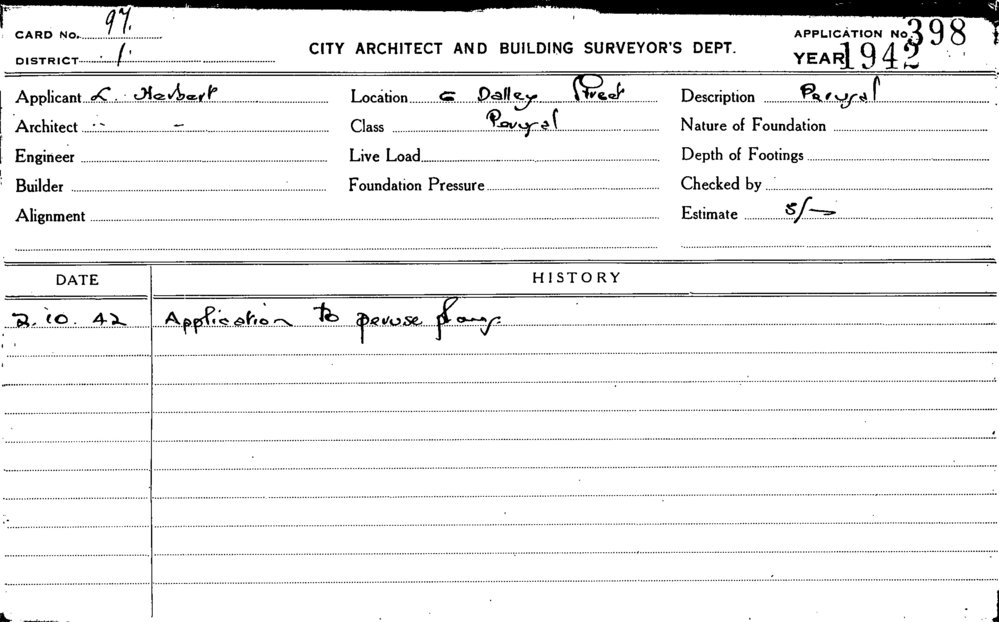 CARD No. 97.
APPLICATION No. 398
DISTRICT 1.
CITY ARCHITECT AND BUILDING SURVEYOR'S DEPT.
YEAR 1942
Applicant L. Herbert
Location Dalley Street
Description Perusal
Architect -
Class Perusal
Nature of Foundation
Engineer
Live Load
Depth of Footings
Builder
Foundation Pressure
Checked by
Alignment
Estimate 5/-
DATE
HISTORY
2.10.42 Application to peruse plans.